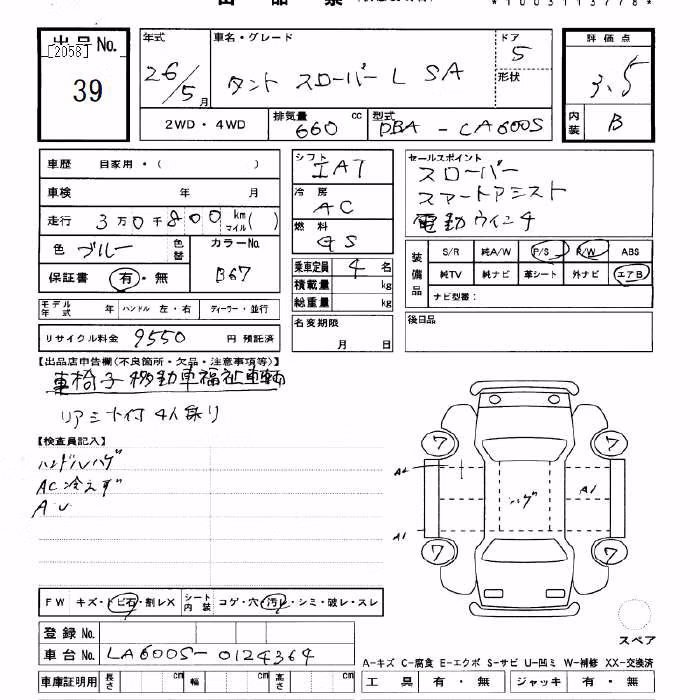 出品票
*1003113778*
出品No.
[2058]
39
年式
26/5月
車名・グレード
タント スローパーL SA
ドア
5
形状
評価点
3.5
2WD・4WD
排気量 660 cc
型式 DBA-LA600S
内装 B
車歴 自家用・( )
車検 年 月
走行 3万0千800 km マイル( )
色 ブルー
色替
カラーNo. B67
保証書 有・無
シフト IAT
冷房 AC
燃料 GS
乗車定員 4 名
積載量 kg
総重量 kg
セールスポイント
スローパー
スマートアシスト
電動ウインチ
装備品
S/R 純A/W P/S P/W ABS
純TV 純ナビ 革シート 外ナビ エアB
ナビ型番:
モデル年式 年 ハンドル 左・右 ディーラー・並行
リサイクル料金 9550 円 預託済
名変期限
月 日
後日品
【出品店申告欄(不良箇所・欠品・注意事項等)】
車椅子移動車福祉車輌
リアシート付 4人乗り
【検査員記入】
ハンドルハゲ
AC冷えず
AU
7
7
A2
ハゲ
A1
A1
7
7
スペア
FW キズ・トビ石・割レX
シート内装 コゲ・穴・汚レ・シミ・破レ・スレ
登録No.
車台No. LA600S-0124364
車庫証明用 長さ cm 幅 cm 高さ cm
A-キズ C-腐食 E-エクボ S-サビ U-凹ミ W-補修 XX-交換済
工具 有・無 ジャッキ 有・無